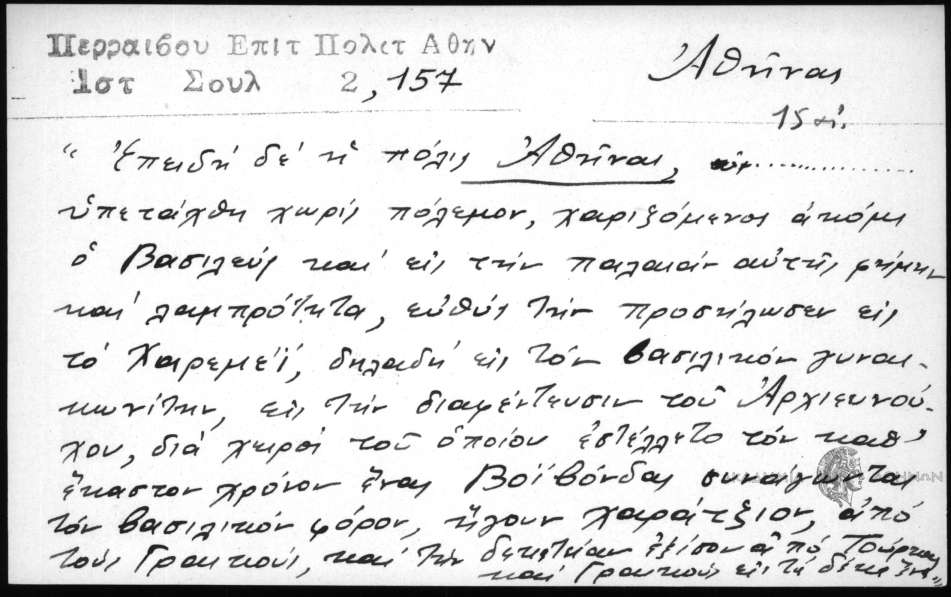 Περραιβου Επιτ Πολετ Αθην
Ιστ Σουλ 2, 157
Ἀθῆναι
" Ἐπειδή δέ ἡ πόλις Ἀθῆναι, ..................
ὑπετάχθη χωρίς πόλεμον, χαριζόμενος ἀκόμη
ὁ Βασιλεύς καί εἰς τήν παλαιάν αὐτῆς φήμην
καί λαμπρότητα, εὐθύς τήν προσήλωσεν εἰς
τό Χαρεμέϊ, δηλαδή εἰς τόν βασιλικόν γυναι-
κωνίτην, εἰς τήν διαφέντευσιν τοῦ Ἀρχιευνού-
χου, διά χειρός τοῦ ὁποίου ἐστέλλετο τόν καθ'
ἕκαστον χρόνον ἕνας Βοϊβόνδας συνάγωντας
τόν βασιλικόν φόρον, ἤγουν χαράτζιον, ἀπό
τούς Γραικούς, καί τήν δεκατείαν ἐξίσου ἀπό Τούρκους
καί Γραικούς εἰς τά δέκα ἕνα"